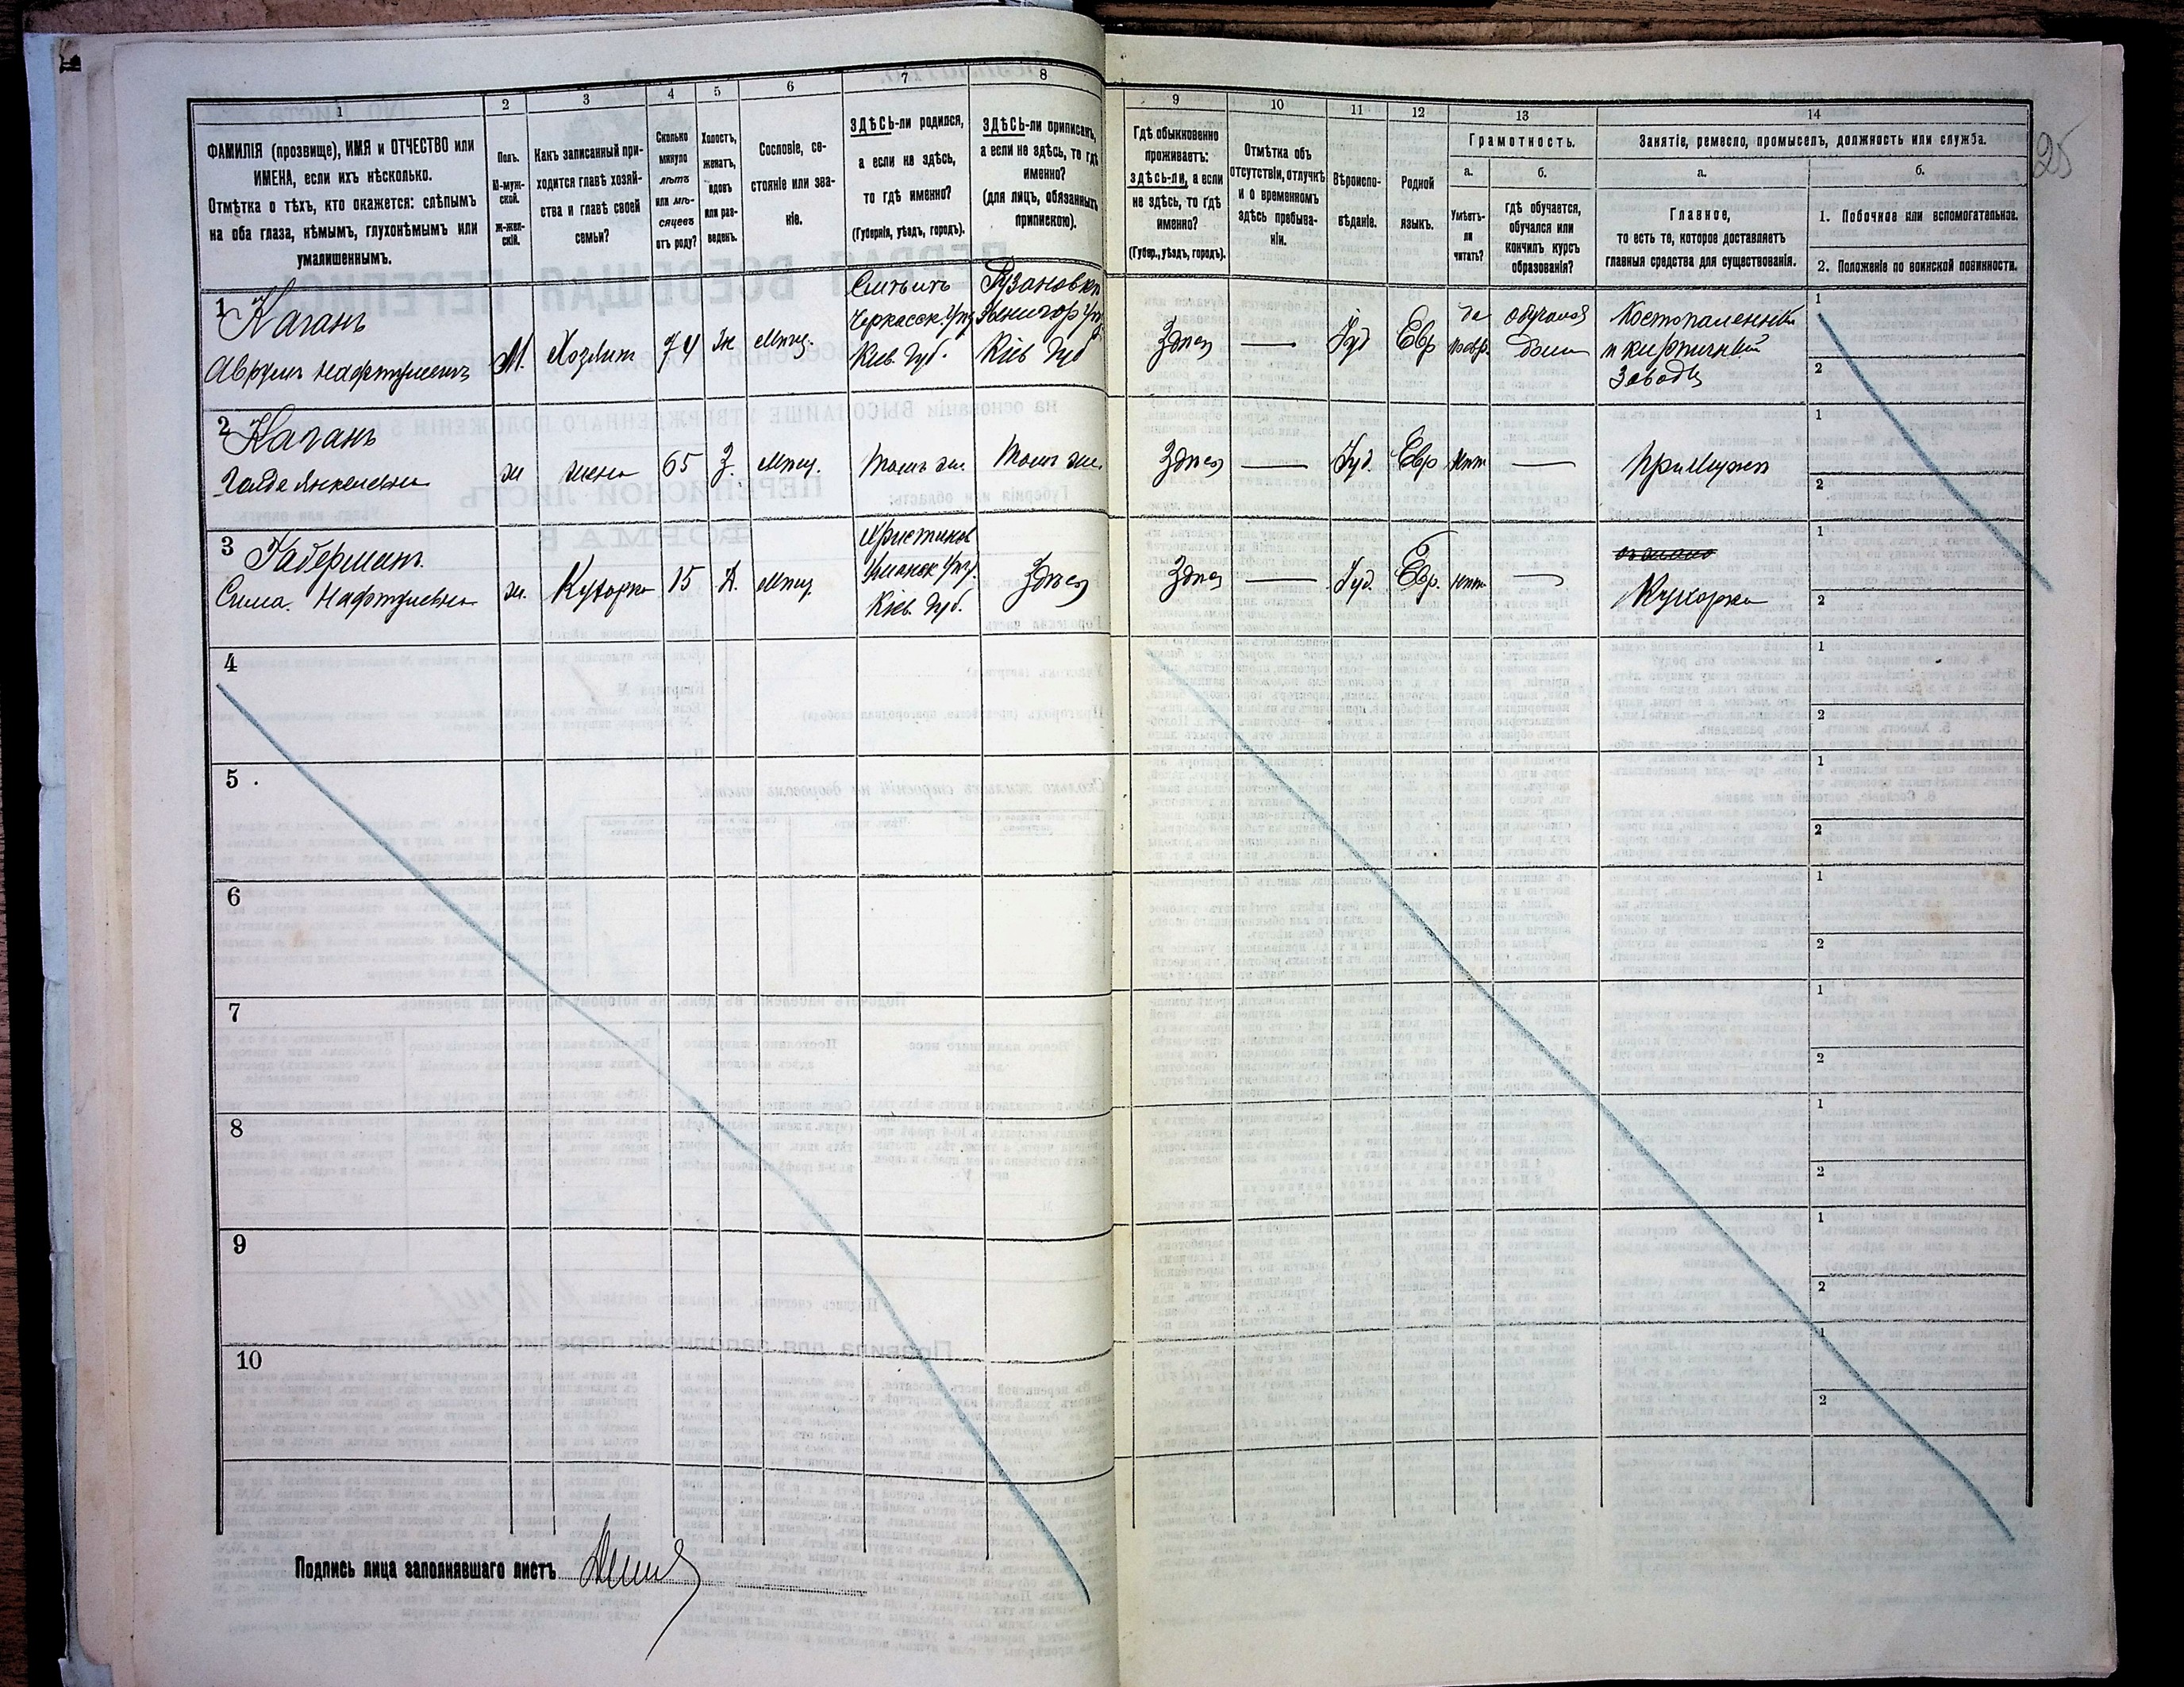 1
2
3
4
5
6
7
8
9
10
11
12
13
14
25
ФАМИЛІЯ (прозвище), ИМЯ и ОТЧЕСТВО или
ИМЕНА, если ихъ нѣсколько.
Отмѣтка о тѣхъ, кто окажется: слѣпымъ
на оба глаза, нѣмымъ, глухонѣмымъ или
умалишеннымъ.
Полъ.
М-муж-
ской.
ж-жен-
скій.
Какъ записанный при-
ходится главѣ хозяй-
ства и главѣ своей
семьи?
Сколько
минуло
лѣтъ
или мѣ-
сяцевъ
отъ роду?
Холостъ,
женатъ,
вдовъ
или раз-
веденъ.
Сословіе, со-
стояніе или зва-
ніе.
ЗДѢСЬ-ли родился,
а если не здѣсь,
то гдѣ именно?
(Губернія, уѣздъ, городъ).
ЗДѢСЬ-ли приписанъ,
а если не здѣсь, то гдѣ
именно?
(для лицъ, обязанныхъ
припискою).
Гдѣ обыкновенно
проживаетъ:
ЗДѢСЬ-ЛИ, а если
не здѣсь, то гдѣ
именно?
(Губер., уѣздъ, городъ).
Отмѣтка объ
отсутствіи, отлучкѣ
и о временномъ
здѣсь пребыва-
ніи.
Вѣроиспо-
вѣданіе.
Родной
языкъ.
Грамотность.
а.
Умѣетъ-
ли
читать?
б.
гдѣ обучается,
обучался или
кончилъ курсъ
образованія?
Занятіе, ремесло, промыселъ, должность или служба.
а.
Главное,
то есть то, которое доставляетъ
главныя средства для существованія.
б.
1. Побочное или вспомогательное.
2. Положеніе по воинской повинности.
1
Каганъ
Аврумъ Нафтулевичъ
М.
Хозяин
74
Ж
Мѣщ.
Черкасск. Уѣз
Кіев. Губ.
Звенигор Уѣз
Кіев Губ
Здѣсь
—
Іуд
Евр
да
по евр.
обучался
дома
Костопаленный
и кирпичный
Заводъ
1
2
2
Каганъ
Голда Янкелевна
ж
жена
65
З.
Мѣщ.
Тамъ же.
Тамъ же.
Здѣсь
—
Іуд.
Евр
нѣт
—
При Мужѣ
1
2
3
Габерманъ.
Сима Нафтулевна
ж.
Кухарка
15
Д.
Мѣщ.
Уманск Уѣз.
Кіев. Губ.
Здѣсь
Здѣсь
—
Іуд.
Евр.
нѣт
—
Кухарка
1
2
4
1
2
5
1
2
6
1
2
7
1
2
8
1
2
9
1
2
10
1
2
Подпись лица заполнявшаго листъ